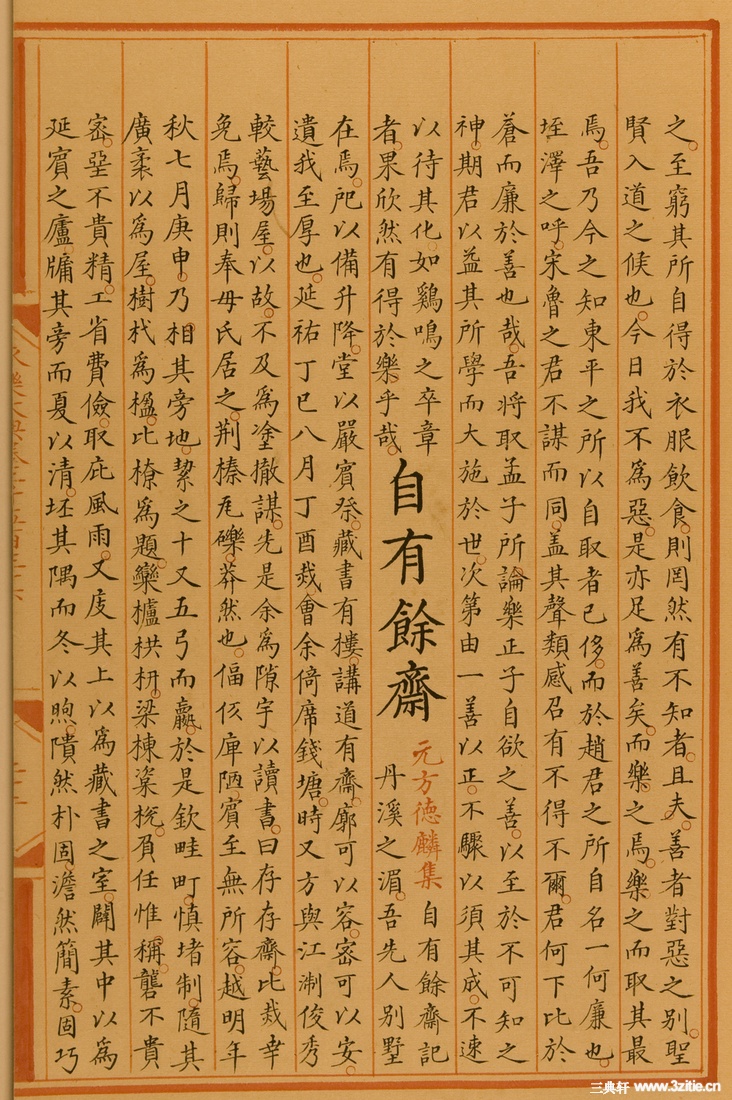 之至窮其所自得於衣服飲食則罔然有不知者且夫善者對惡之別聖
賢入道之候也今日我不爲惡是亦足爲善矣而樂之焉樂之而取其最
焉吾乃今之知東平之所以自取者已侈而於趙君之所自名一何廉也
垤澤之呼宋魯之君不謀而同蓋其聲類感召有不得不爾君何下比於
蒼而廉於善也哉吾將取孟子所論樂正子自欲之善以至於不可知之
神期君以益其所學而大施於世次第由一善以正不驟以須其成不速
以待其化如鷄鳴之卒章
者果欣然有得於樂乎哉
自有餘齋
元方德麟集
自有餘齋記
丹溪之湄吾先人別墅
在焉戺以備升降堂以嚴賓祭藏書有樓講道有齋廓可以容密可以安
遺我至厚也延祐丁巳八月丁酉烖會余倚席錢塘時又方與江淛俊秀
較藝場屋以故不及爲塗撤謀先是余爲隙宇以讀書曰存存齋比烖幸
免焉歸則奉母氏居之荆榛瓦礫莽然也偪仄庳陋賓至無所容越明年
秋七月庚申乃相其旁地絜之十又五弓而贏於是欽畦町慎堵制隨其
廣袤以爲屋樹杙爲楹比橑爲題欒櫨栱枅梁棟楶梲負任惟稱礱不貴
密堊不貴精工省費儉取庇風雨又庋其上以爲藏書之室闢其中以爲
延賓之廬牖其旁而夏以清坯其隅而冬以煦隤然朴固澹然簡素固巧
三典轩 www.3zitie.cn